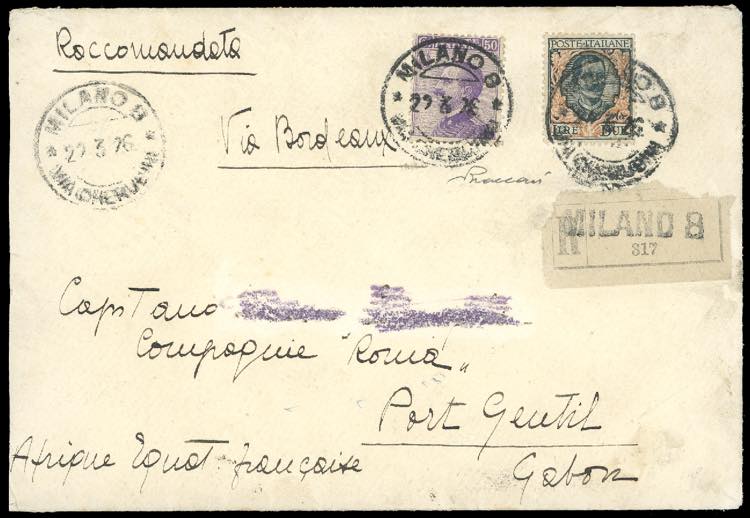 Raccomandata
50
POSTE ITALIANE
LIRE DUE
MILANO 8
29 3 26
MILANO 8
29 3 26
MILANO 8
Via Bordeaux
R
MILANO 8
317
Capitano
Compagnie "Roma"
Port Gentil
Afrique Equat. française
Gabon